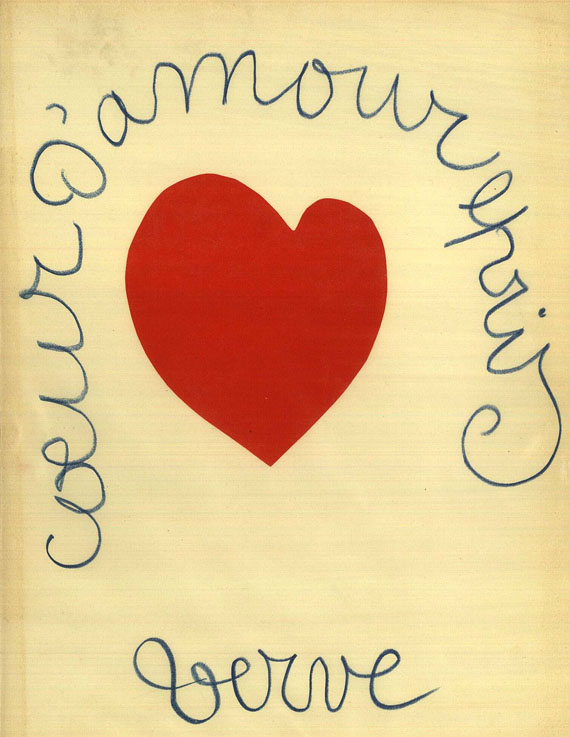 coeur d'amour épris
verve